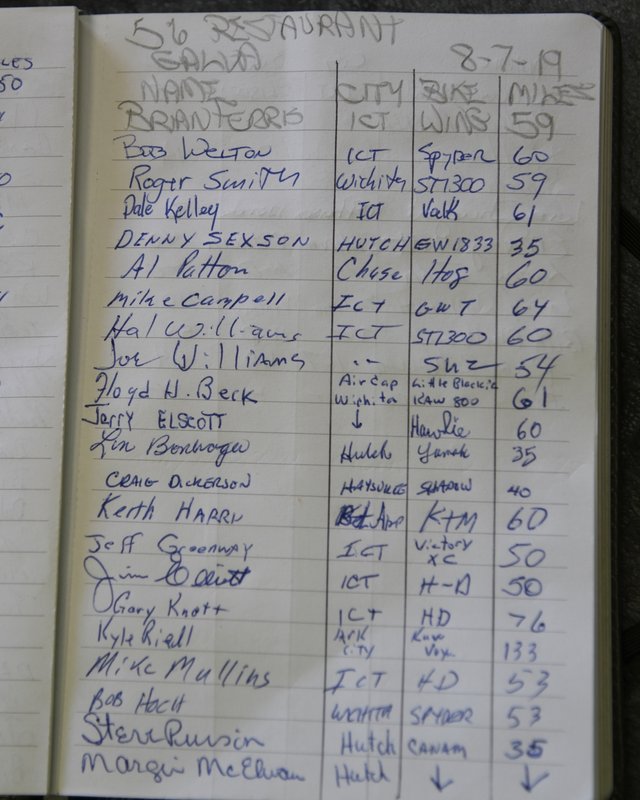 LES
50
56 RESTAURANT
GALVA 8-7-19
NAME CITY BIKE MILES
BRIAN FERRIS ICT WING 59
BOB WELTON ICT Spyder 60
Roger Smith Wichita ST1300 59
Dale Kelley ICT Valk 61
DENNY SEXSON HUTCH GW1833 35
Al Patton Chase Hog 60
Mike Campbell ICT GWT 64
Hal Williams ICT ST1300 60
Joe Williams " Suz 54
Floyd H. Beck Air Cap Wichita Little Blackie KAW 800 61
Jerry ELSCOTT ↓ 60
Hutch 35
CRAIG DICKERSON HAYSVILLE SHADOW 40
Keith KTM 60
Jeff Greenway ICT Victory XC 50
Jim ICT H-D 50
Gary Knott ICT HD 76
Kyle Riall Ark City Kaw Voy. 133
Mike Mullins ICT HD 53
BOB HOCH WICHITA SPYDER 53
Steve Hutch CANAM 35
Margie McElwain Hutch ↓ ↓